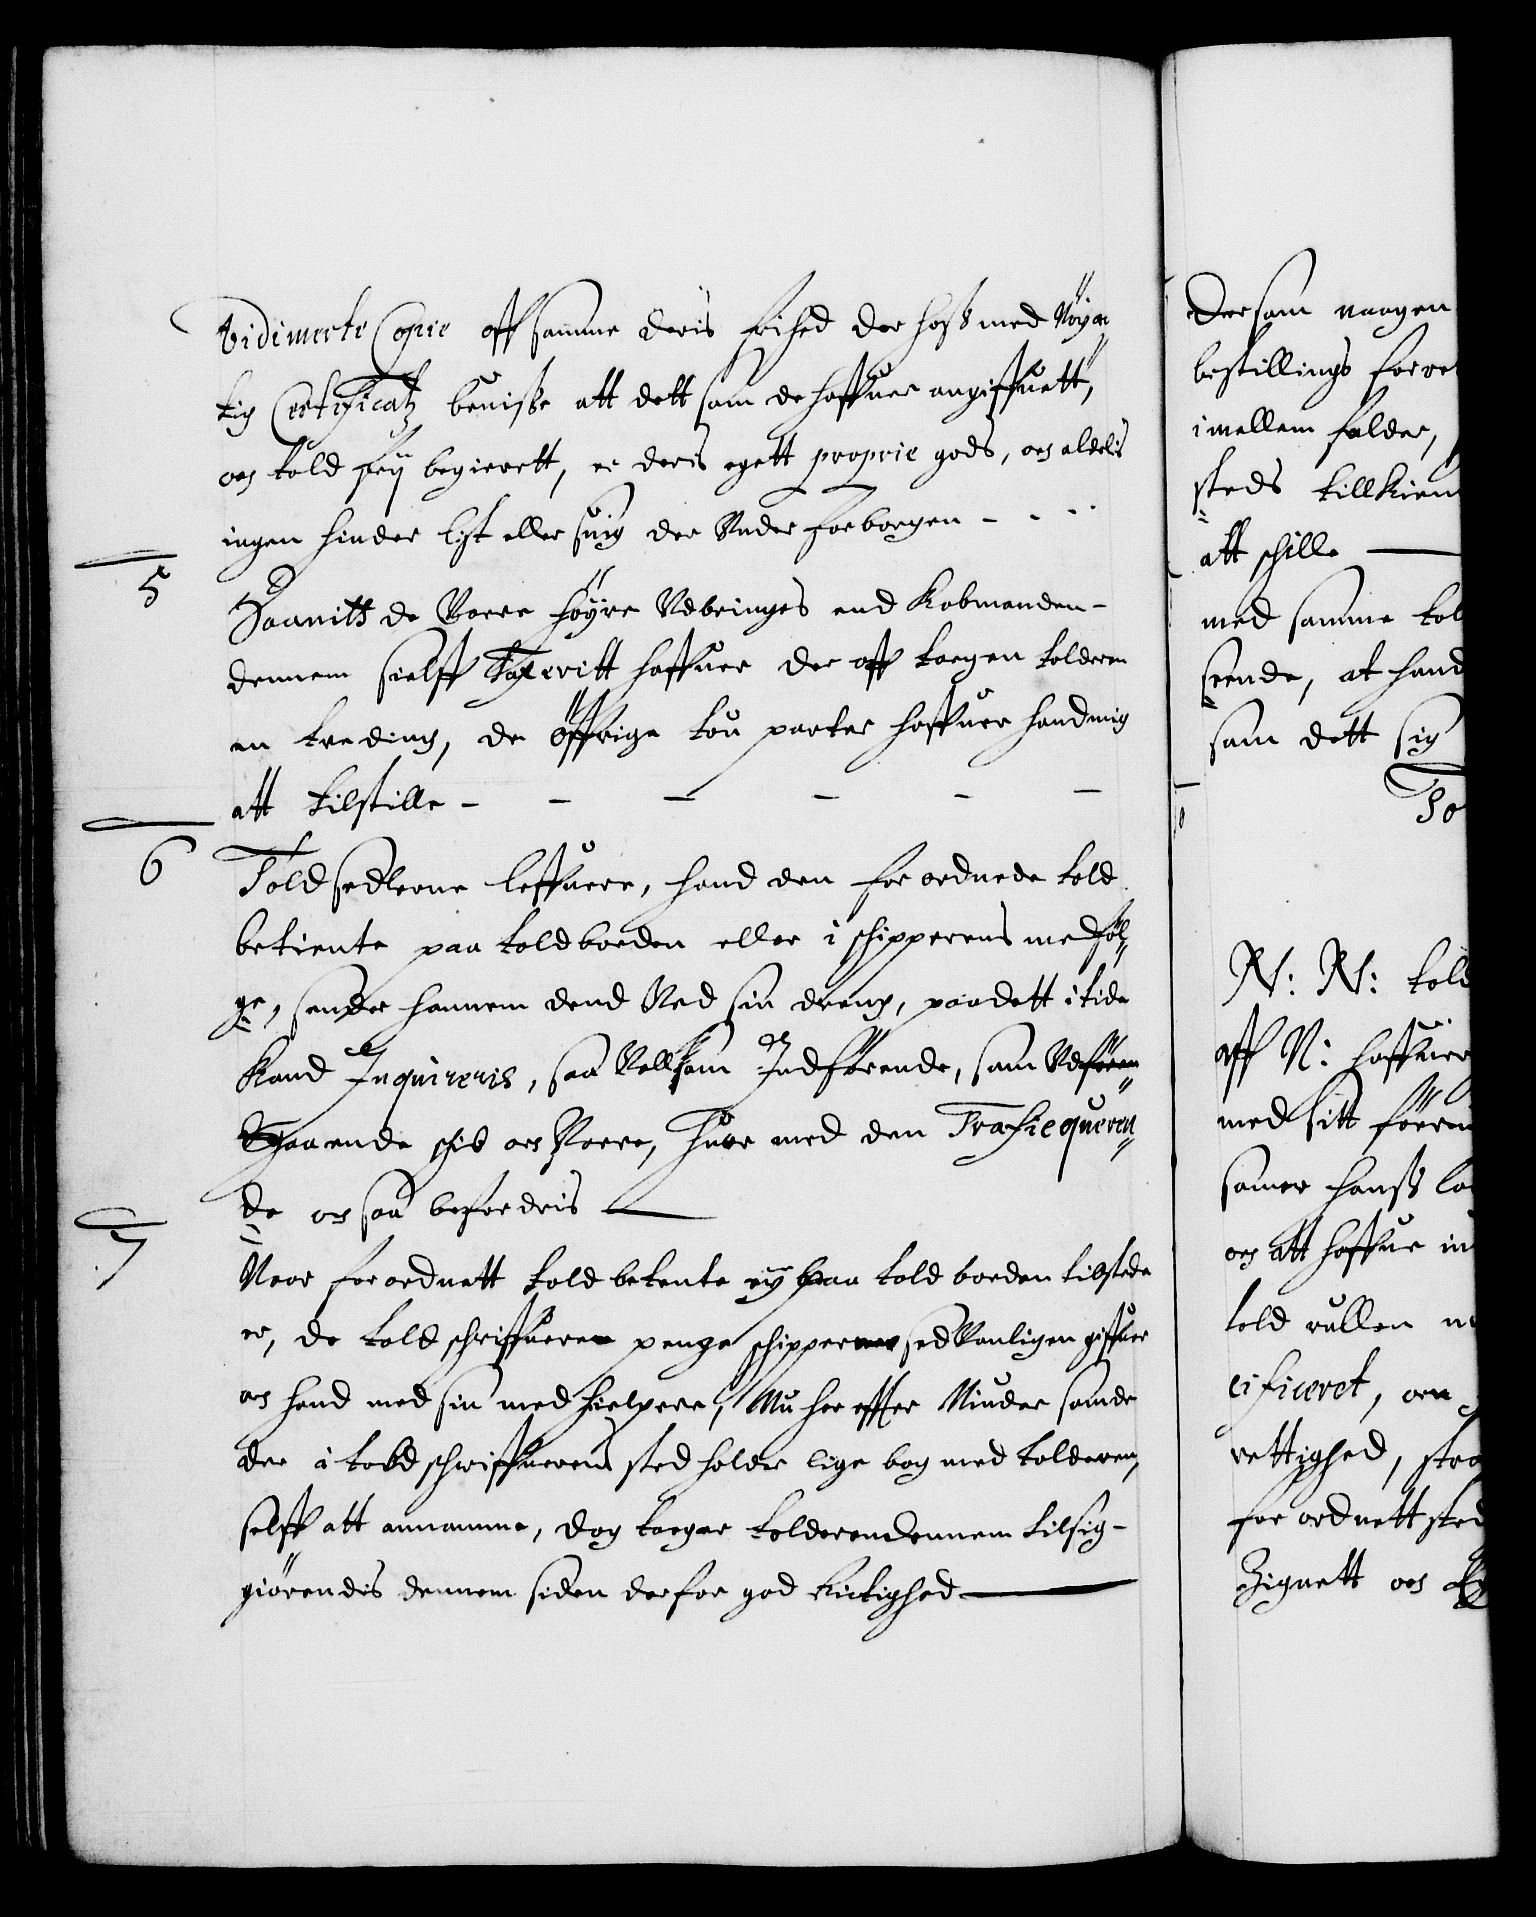 Vidimerte Copie aff samme deris frihed der hoß med Nöyac
tig Certificatz beuiße att dett som de haffuer angiffuett,
och told frij begierett, er deris egett proprie gods, och aldelis
ingen hinder list eller suig der Under forborgen - - - -
5
Saauitt de Vare höyre Udbringes end Kobmanden -
dennem sielff Taxeritt haffuer der aff tager tolderen
en treding, de öffrige tou parter haffuer hand mig
att tilstille - - - - - -
6
Told sedlerne leffuere, hand den for ordnede told
betiente paa toldboden eller i schipperens med föl„
ge, sender hannem dend Ved sin dreng, paa dett i tide
Kand Inquireris, saa Vell som Indförende, som Udfören„
gaaende schib och Vare, huor med den Trafiequeren„
de och saa befordris
7
Naar for ordnett told betente ey paa told boden tilstede
er, de told schriffueren penge schipperne sedVanligen giffuer
och hand med sin med hielpere, Nu her effter Niuder samde
der i told schriffuerens sted holder lige bog med tolderen,
selff att annamme, dog tager tolderen dennem til sig -
giörendis dennem siden derfor god Rictighed
Dersom naagen
bestillings forre
imellem falder,
steds tillkien
att schille
med samme tol
seende, at hand
som dett sig
To
N: N: told
aff N: haffuer
med sitt förre
samer hanß la
och att haffue in
told rullen
cificeret, och
rettighed, stra
for ordnett sted
Zignett och